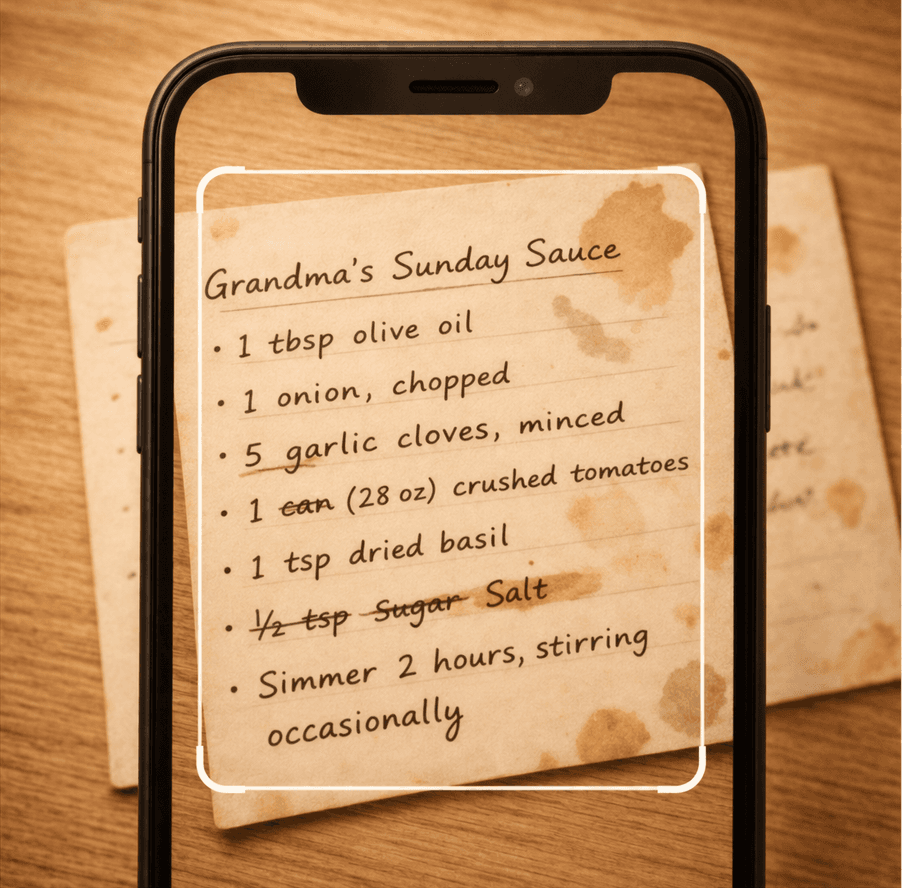 Grandma's Sunday Sauce
• 1 tbsp olive oil
• 1 onion, chopped
• 5 garlic cloves, minced
• 1 can (28 oz) crushed tomatoes
• 1 tsp dried basil
• ½ tsp Sugar Salt
• Simmer 2 hours, stirring
occasionally